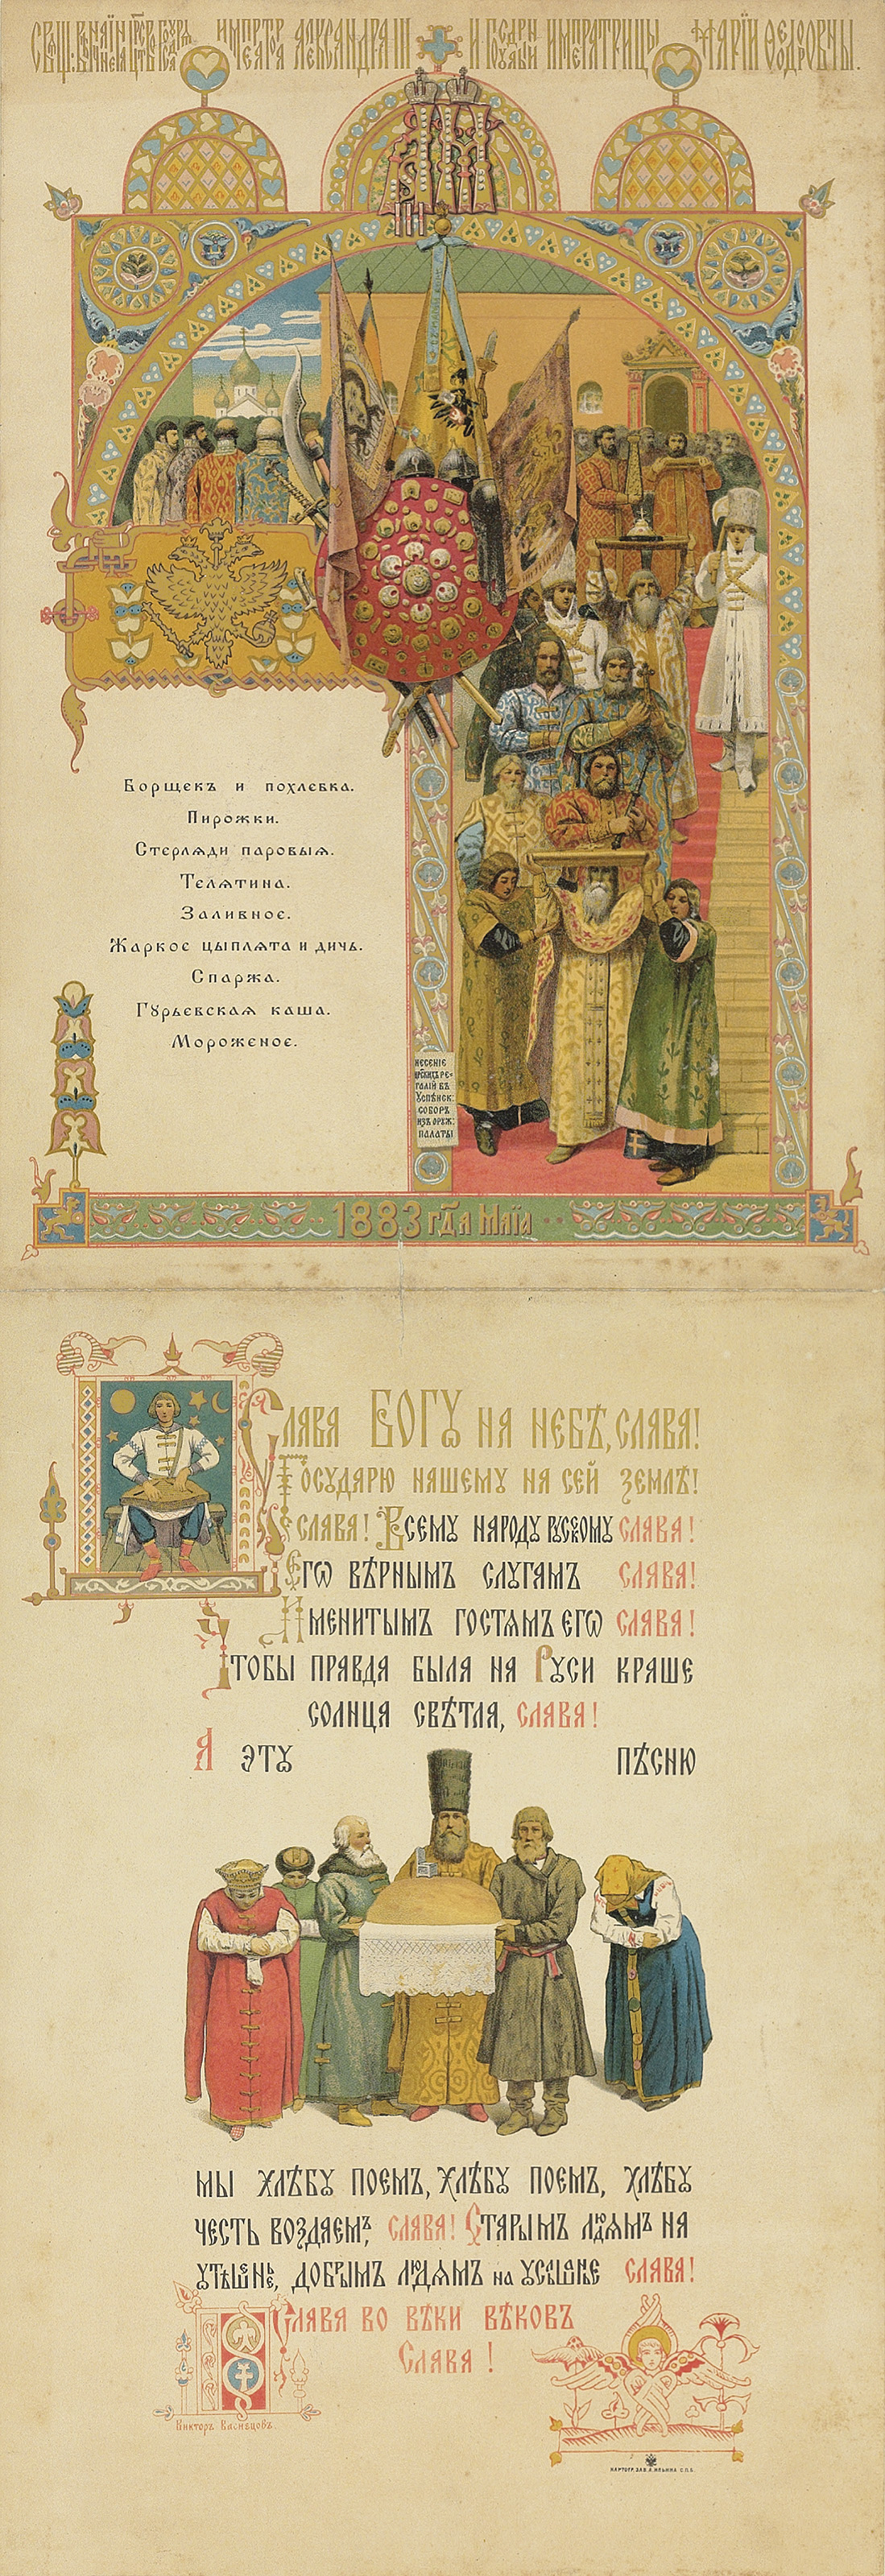 ИМПРТР АЛЕКСАНДРА III И ГСДРН ИМПЕРАТРИЦЫ МАРІИ ѲЕОДРОВНЫ.
Борщекъ и похлебка.
Пирожки.
Стерлѧди паровыѧ.
Телѧтина.
Заливное.
Жаркое цыплѧта и дичь.
Спаржа.
Гꙋрьевскаѧ каша.
Мороженое.
НЕСЕНІЕ
ЦРСКИХЪ РЕ-
ГАЛІЙ ВЪ
УСПѢНСК:
СОБОРЪ
ИЗЪ ОРУЖ:
ПАЛАТЫ
1883 гдⷭа Маїа
Слава Богꙋ на небѣ, слава!
Государю нашему на сей землѣ!
Слава! Всему народꙋ рꙋсскомꙋ слава!
Егѡ вѣрнымъ слꙋгамъ слава!
Именитымъ гостѧмъ егѡ слава!
Чтобы правда была на Рꙋси краше
солнца свѣтла, слава!
А этꙋ пѣсню
мы хлѣбꙋ поемъ, хлѣбꙋ поемъ, хлѣбꙋ
честь воздаемъ, слава! Старымъ людѧмъ на
ꙋтѣшенье, добрымъ людѧмъ на ꙋслышенье слава!
Слава во вѣки вѣковъ
Слава!
Викторъ Васнецовъ.
КАРТОГР. ЗАВ. А. ИЛЬИНА С.П.Б.